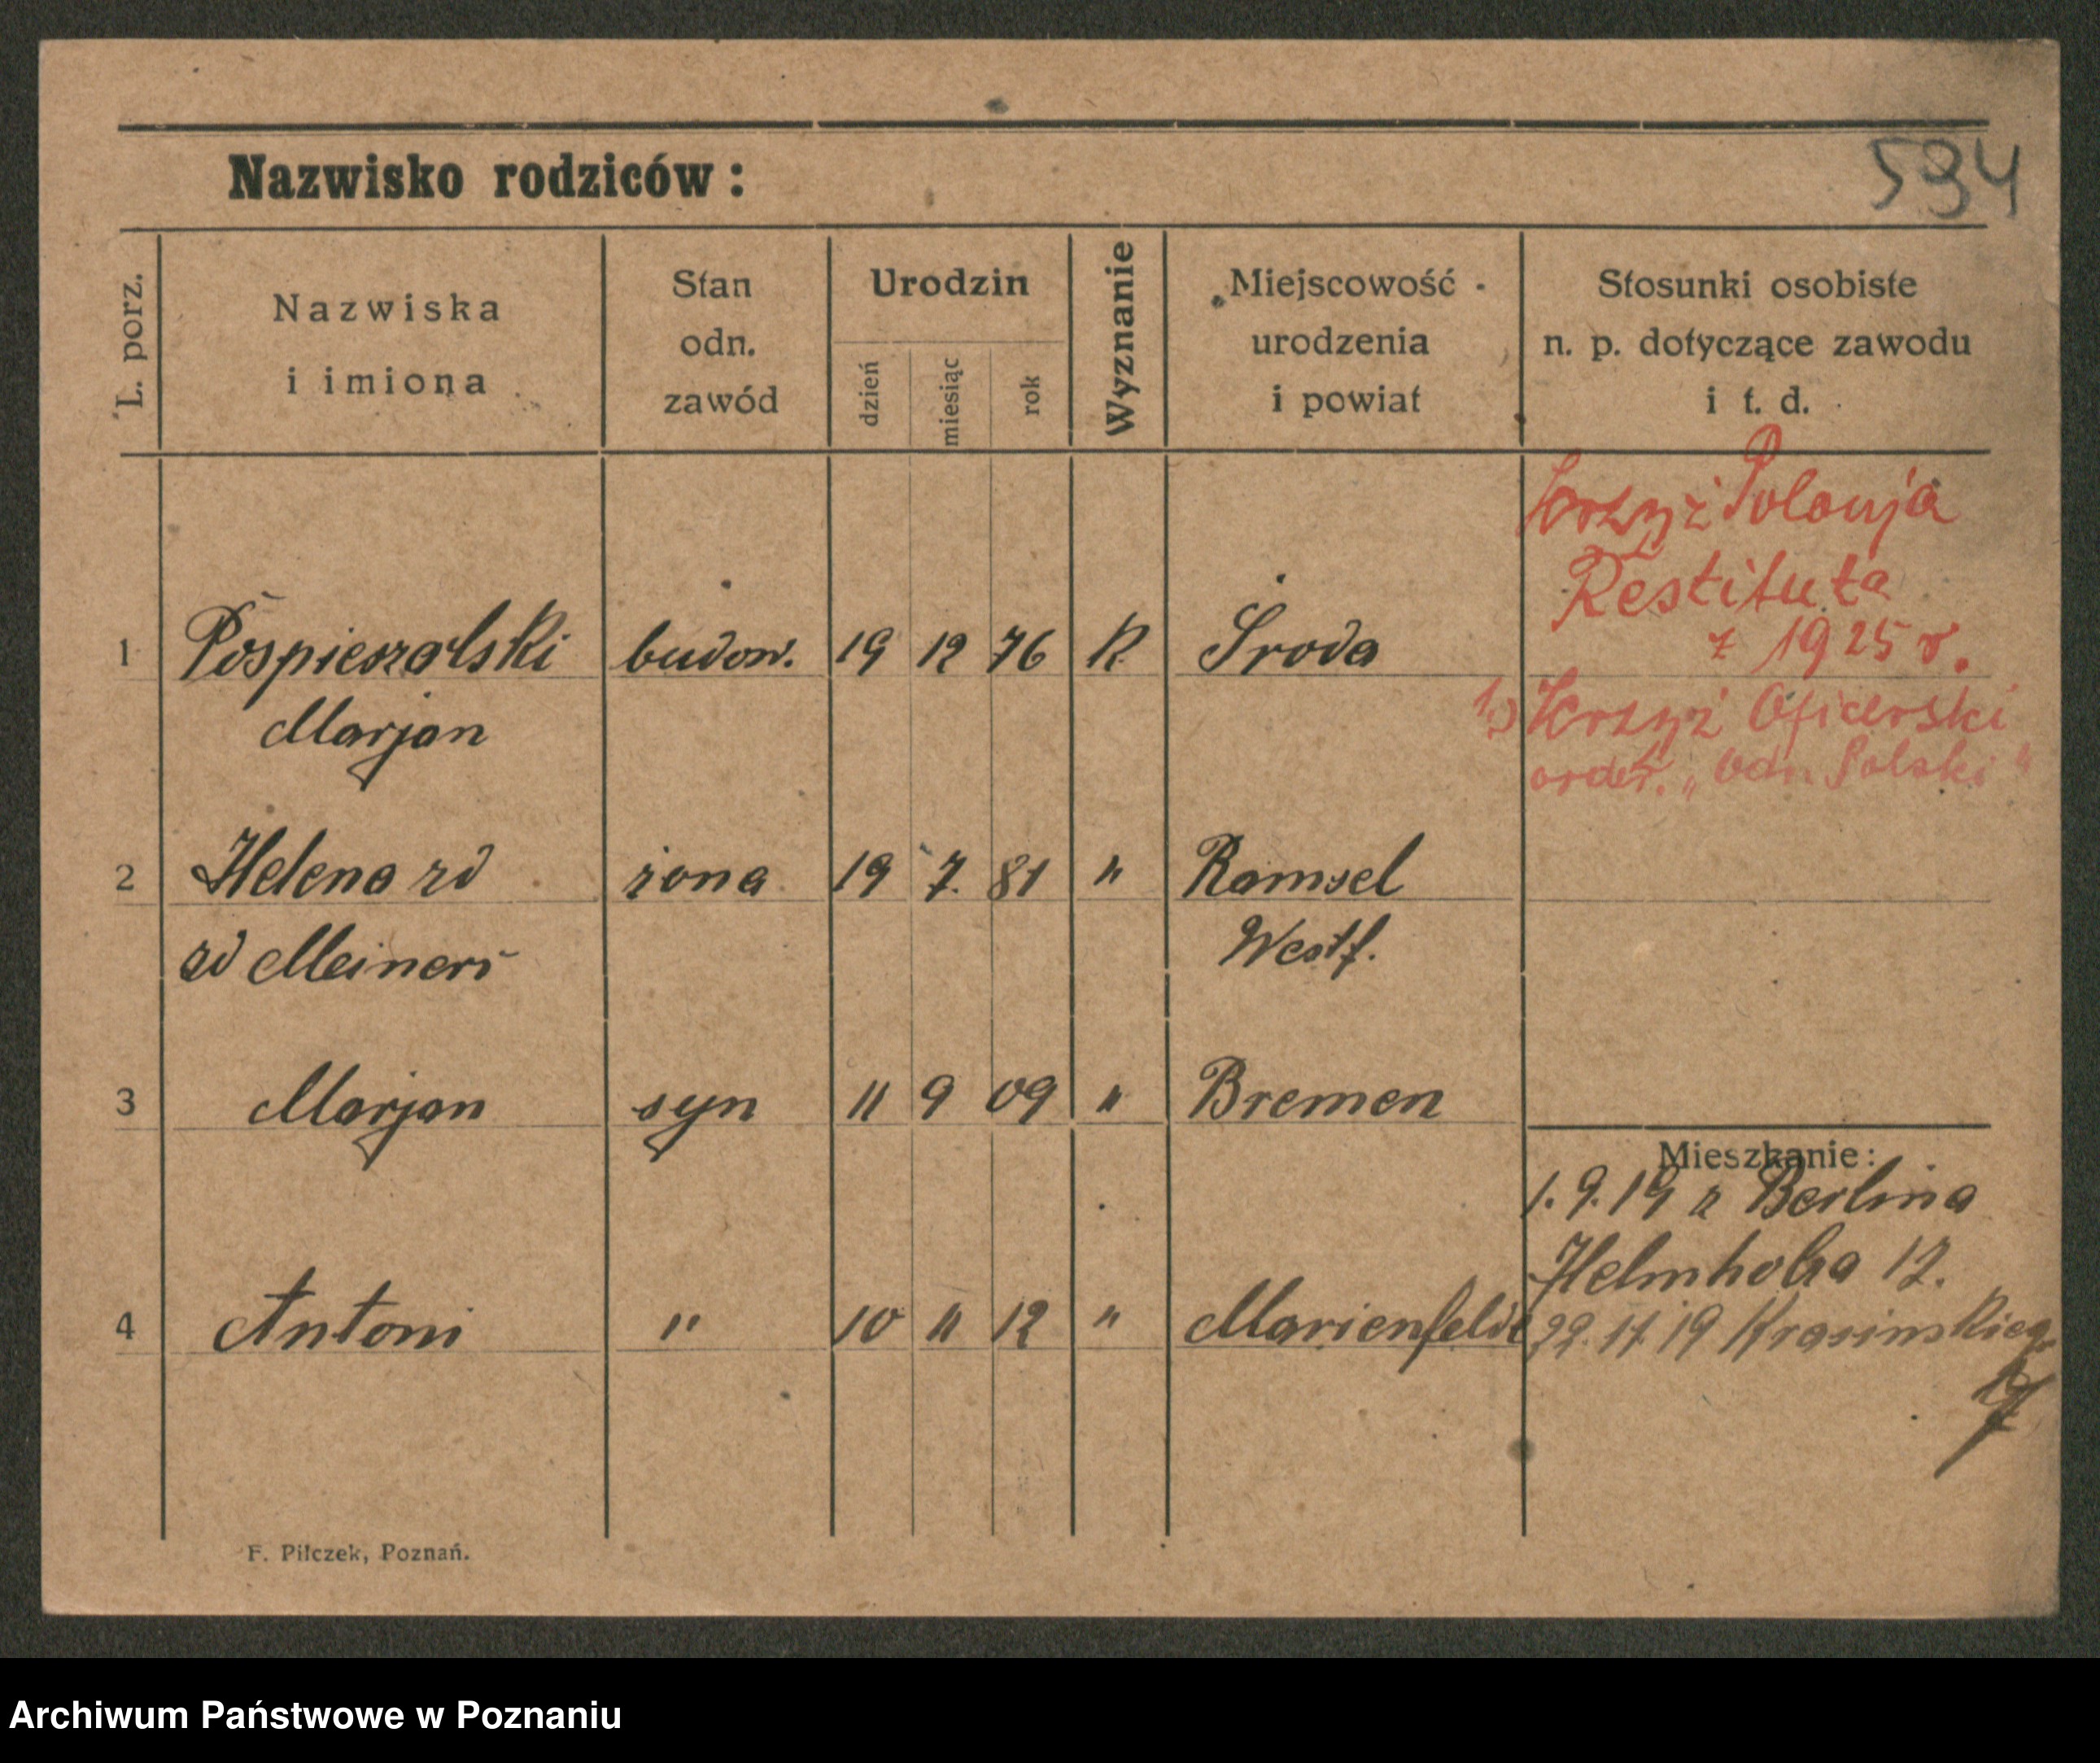 594
Nazwisko rodziców:
L. porz.
Nazwiska
i imiona
Stan
odn.
zawód
Urodzin
dzień
miesiąc
rok
Wyznanie
Miejscowość
urodzenia
i powiat
Stosunki osobiste
n. p. dotyczące zawodu
i t. d.
Krzyż Polonja
Restituta
z 1925 r.
1 Pospieszalski budow. 19 12 76 R. Środa
Marjan
1) Krzyż Oficerski
order. „Odr. Polski"
2 Helena zd żona 19 7. 81 " Ramsel
zd Meiners Westf.
3 Marjan syn 11 9 09 " Bremen
Mieszkanie:
1. 9. 19 z Berlina
Helmholza 12.
4 Antoni " 10 11 12 " Marienfelde
22. 11. 19 Krasinskiego
F. Pilczek, Poznań.
Archiwum Państwowe w Poznaniu